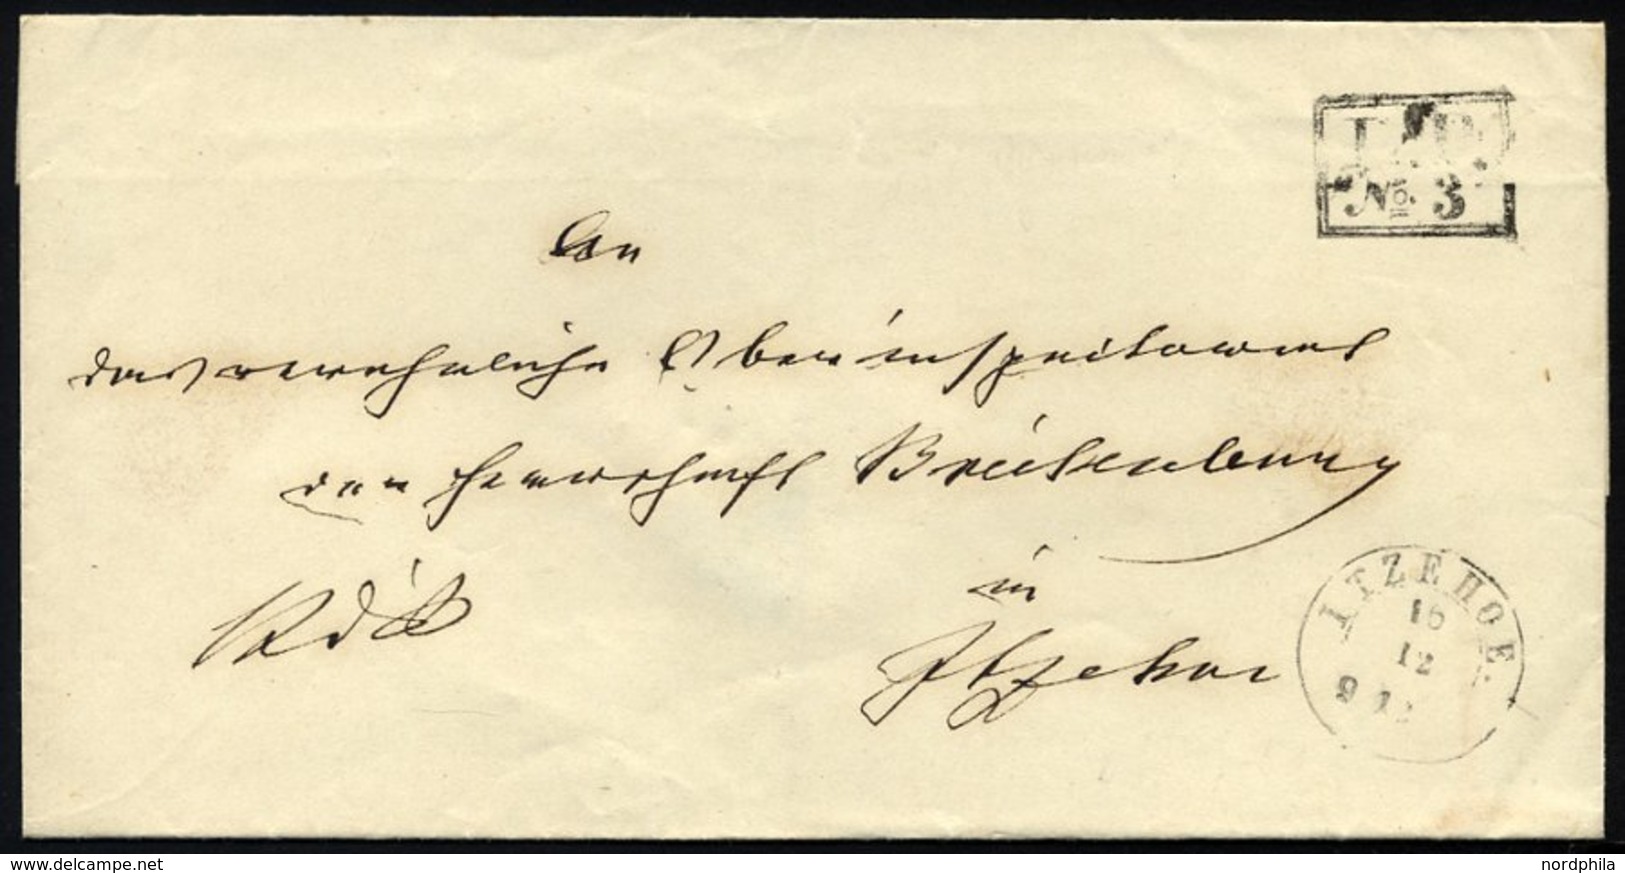 L.P.
No. 3
An
das verehrliche Oberinspectorat
der Herrschaft Breitenburg
in
Itzehoe
ITZEHOE.
16
12
9 12
www.delcampe.net
nordphila